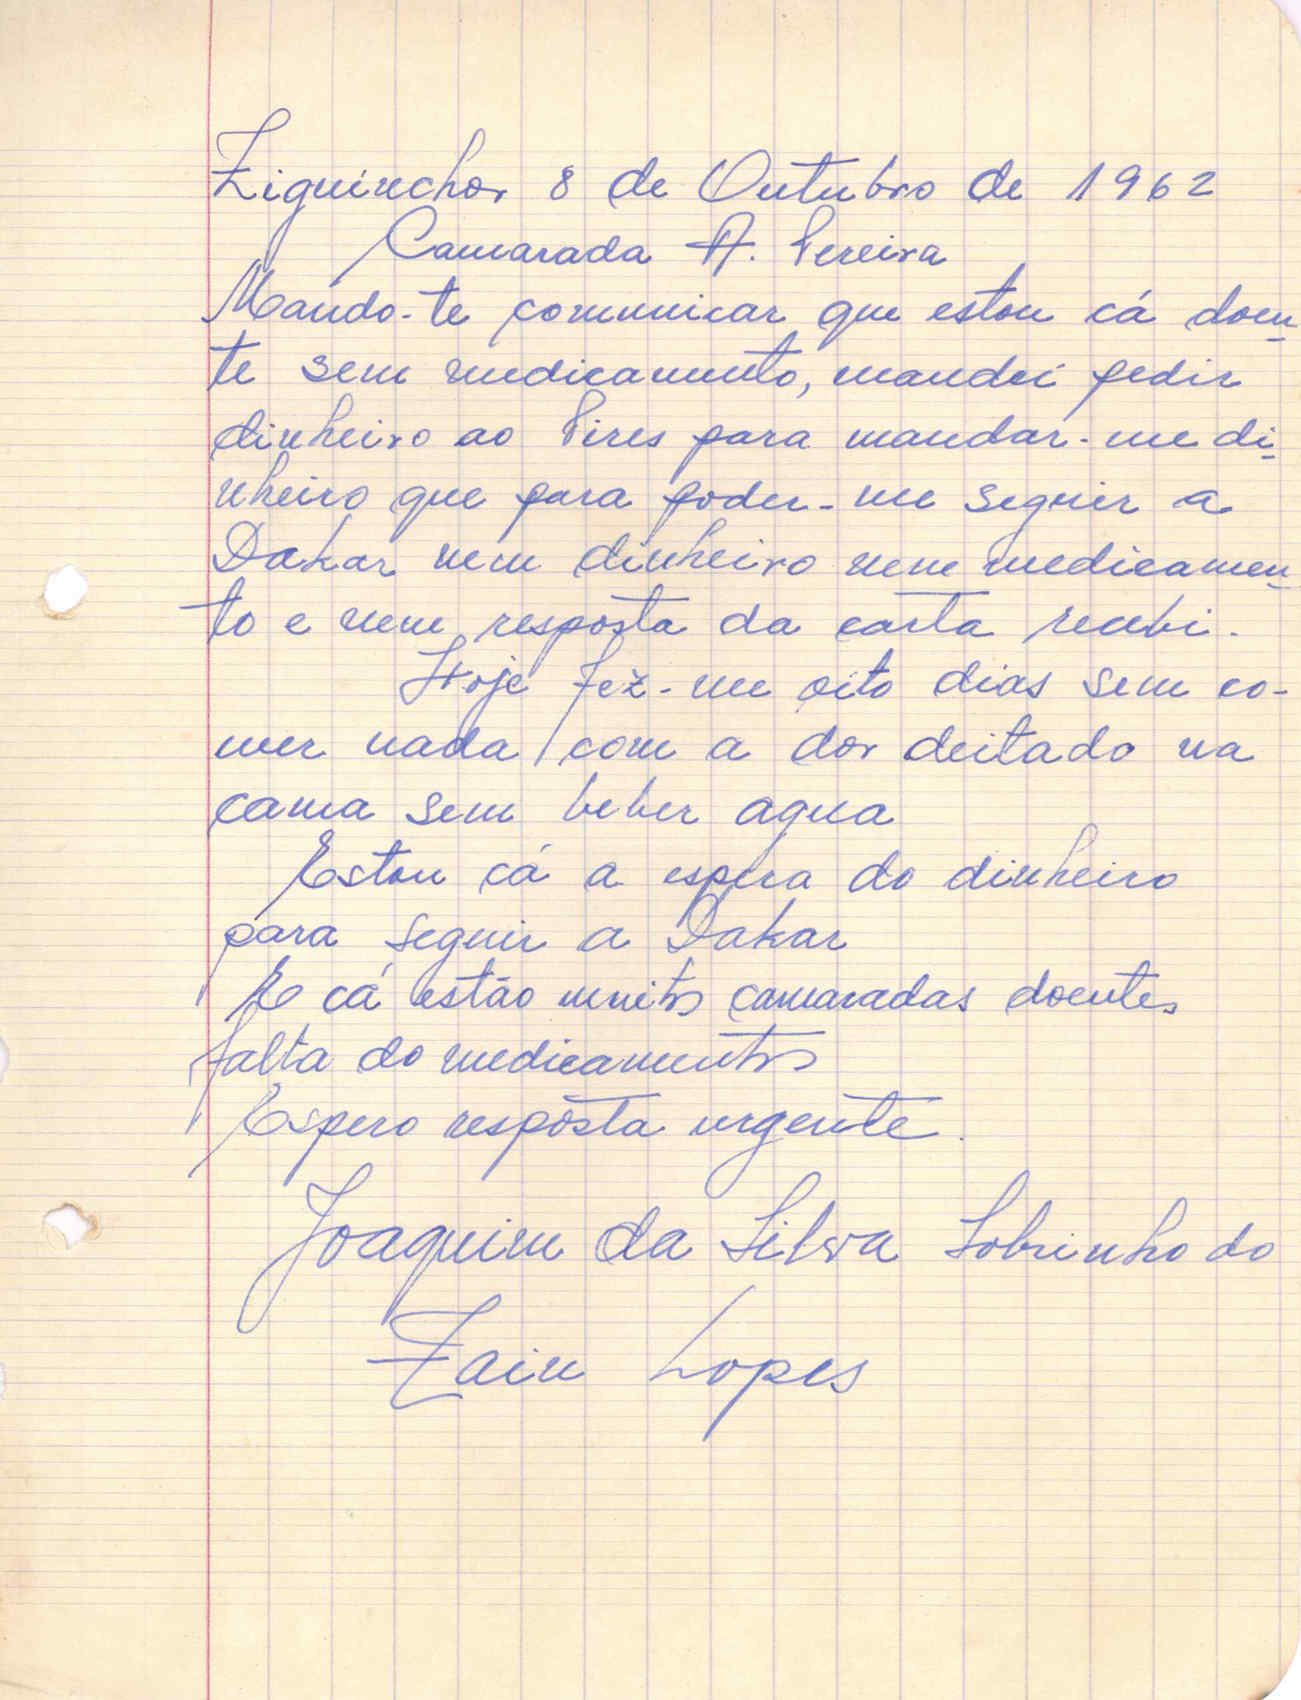 Ziguinchor 8 de Outubro de 1962
Camarada A. Pereira
Mando-te comunicar que estou cá doen-
te sem medicamento, mandei pedir
dinheiro ao Pires para mandar-me di-
nheiro que para poder-me seguir a
Dakar nem dinheiro nem medicamen-
to e nem resposta da carta recebi.
Hoje fez-me oito dias sem co-
mer nada com a dor deitado na
cama sem beber agua
Estou cá a espera do dinheiro
para seguir a Dakar
E cá estão muitos camaradas doentes
falta do medicamentos
Espero resposta urgente.
Joaquim da Silva Sobrinho do
Zain Lopes